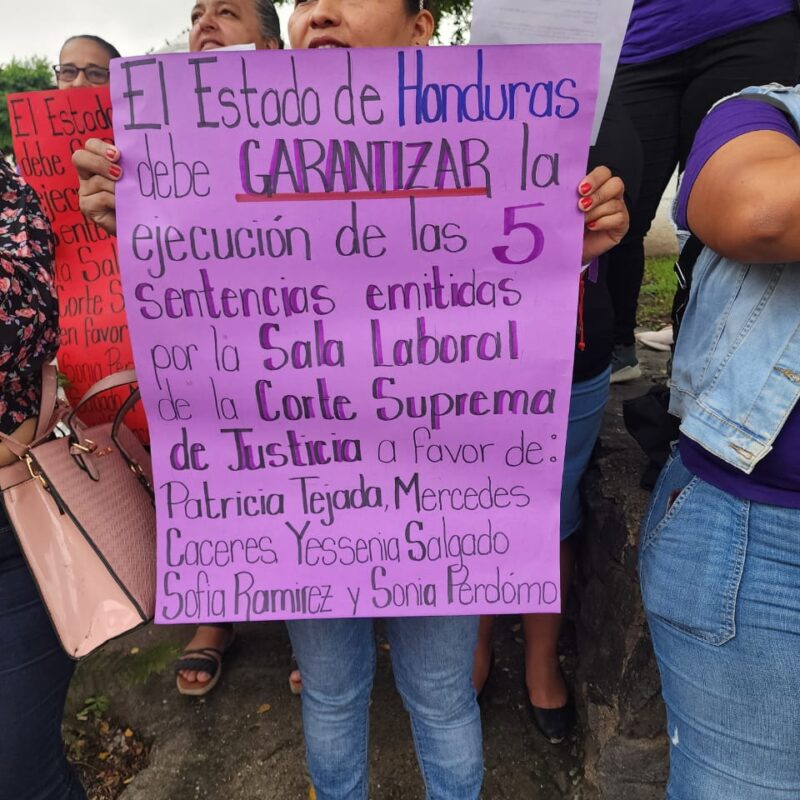 El Estado de Honduras
debe GARANTIZAR la
ejecución de las 5
sentencias emitidas
por la Sala Laboral
de la Corte Suprema
de Justicia a favor de:
Patricia Tejada, Mercedes
Caceres Yessenia Salgado
Sofia Ramirez y Sonia Perdómo
El Estado
debe
la Sal
Corte S
en favor
Sonia Perd